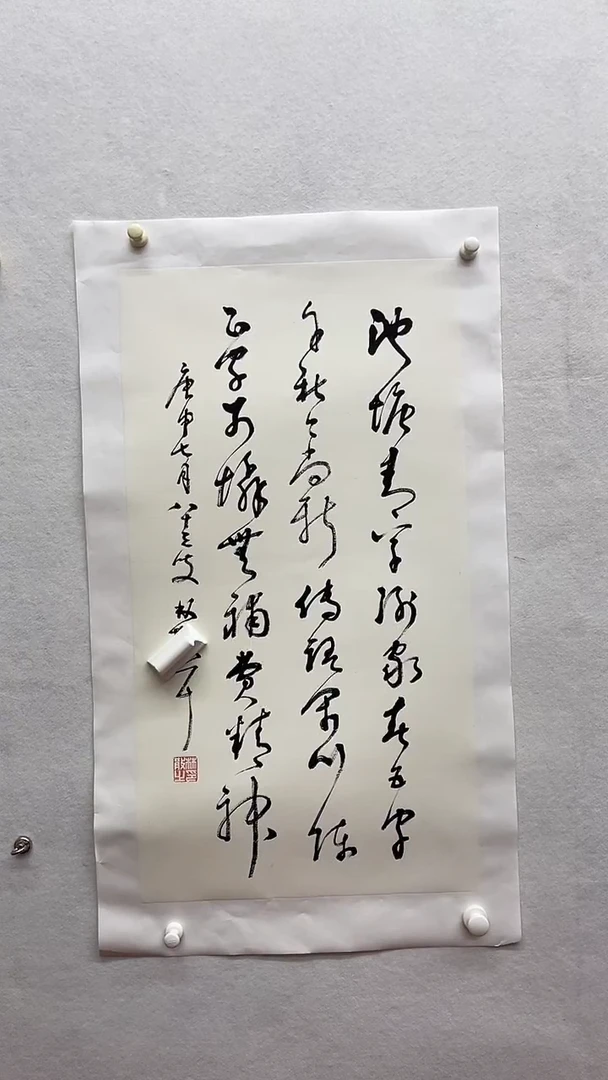 池塘青草謝家春五字
千秋今尚新傳語閉門陳
正字可憐無補費精神
庚申七月八十三叟